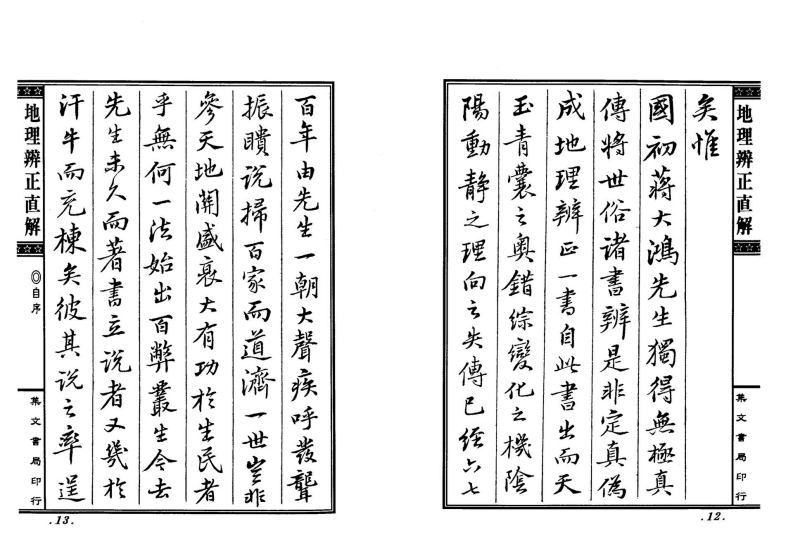 地理辨正直解
集文書局印行
矣惟
國初蔣大鴻先生獨得無極真
傳將世俗諸書辨是非定真偽
成地理辨正一書自此書出而天
玉青囊之奧錯綜變化之機陰
陽動靜之理向之失傳已經六七
.12.
百年由先生一朝大聲疾呼發聾
振聵說掃百家而道濟一世豈非
參天地開盛衰大有功於生民者
乎無何一法始出百弊叢生今去
先生未久而著書立說者又幾於
汗牛而充棟矣彼其說之率逞
地理辨正直解
◎自序
集文書局印行
.13.